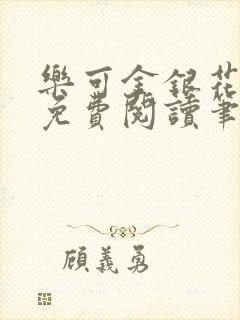 樂可金銀花
免費閱讀筆
顧義勇